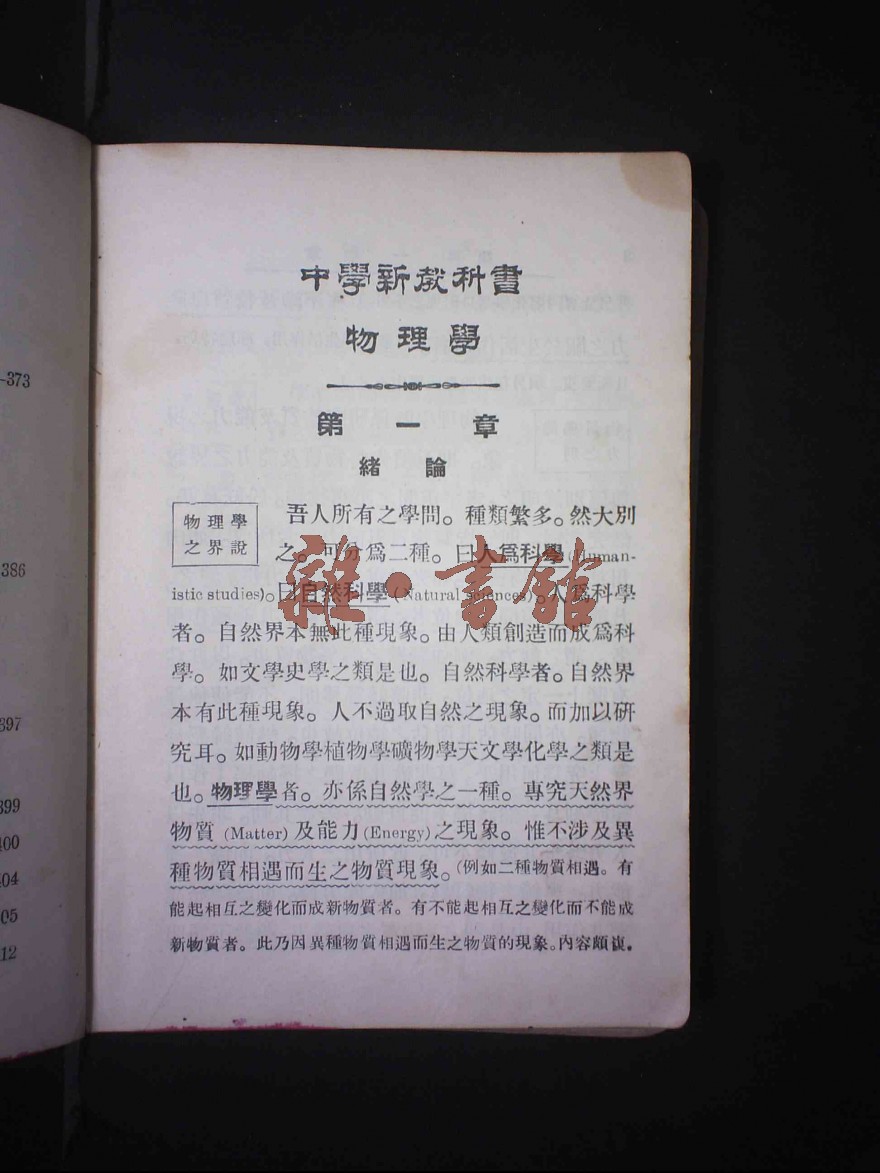 -373
386
397
399
400
404
405
12
中學新敎科書
物理學
第一章
緒論
物理學
之界說
吾人所有之學問。種類繁多。然大別
之。可分爲二種。曰人爲科學(Human-
istic studies)。曰自然科學(Natural sciences)。人爲科學
者。自然界本無此種現象。由人類創造而成爲科
學。如文學史學之類是也。自然科學者。自然界
本有此種現象。人不過取自然之現象。而加以硏
究耳。如動物學植物學礦物學天文學化學之類是
也。物理學者。亦係自然學之一種。專究天然界
物質(Matter)及能力(Energy)之現象。惟不涉及異
種物質相遇而生之物質現象。(例如二種物質相遇。有
能起相互之變化而成新物質者。有不能起相互之變化而不能成
新物質者。此乃因異種物質相遇而生之物質的現象。內容頗複。
雜·書館